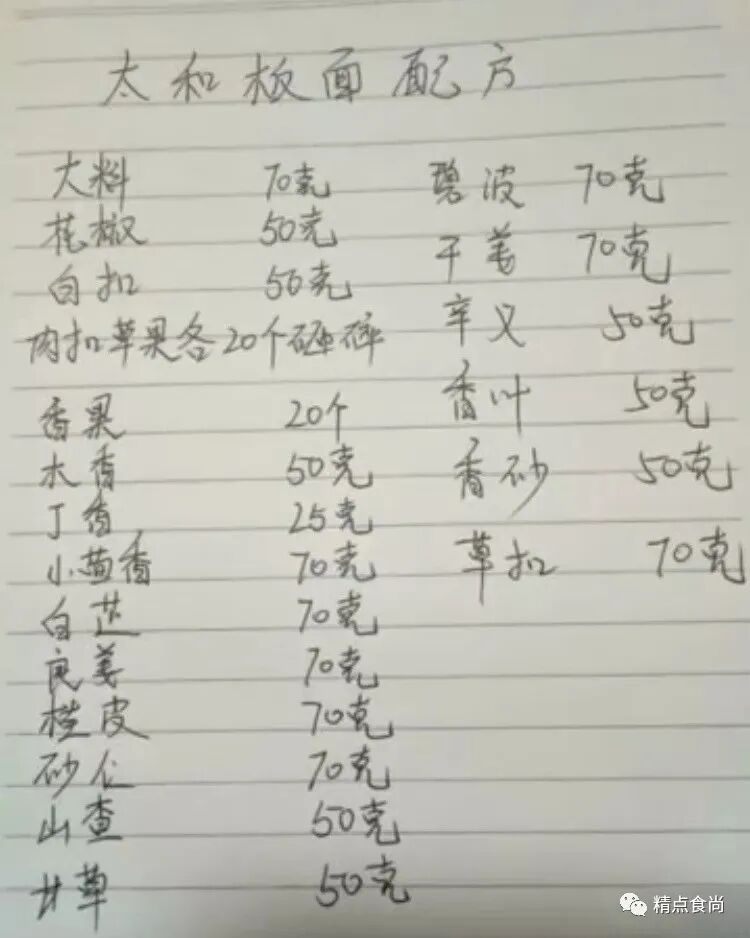 太和板面配方
大料 70克
花椒 50克
白扣 50克
肉扣草果各20个砸碎
香果 20个
木香 50克
丁香 25克
小茴香 70克
白芷 70克
良姜 70克
桂皮 70克
砂仁 70克
山查 50克
甘草 50克
碧波 70克
干姜 70克
辛义 50克
香叶 50克
香砂 50克
草扣 70克
精点食尚